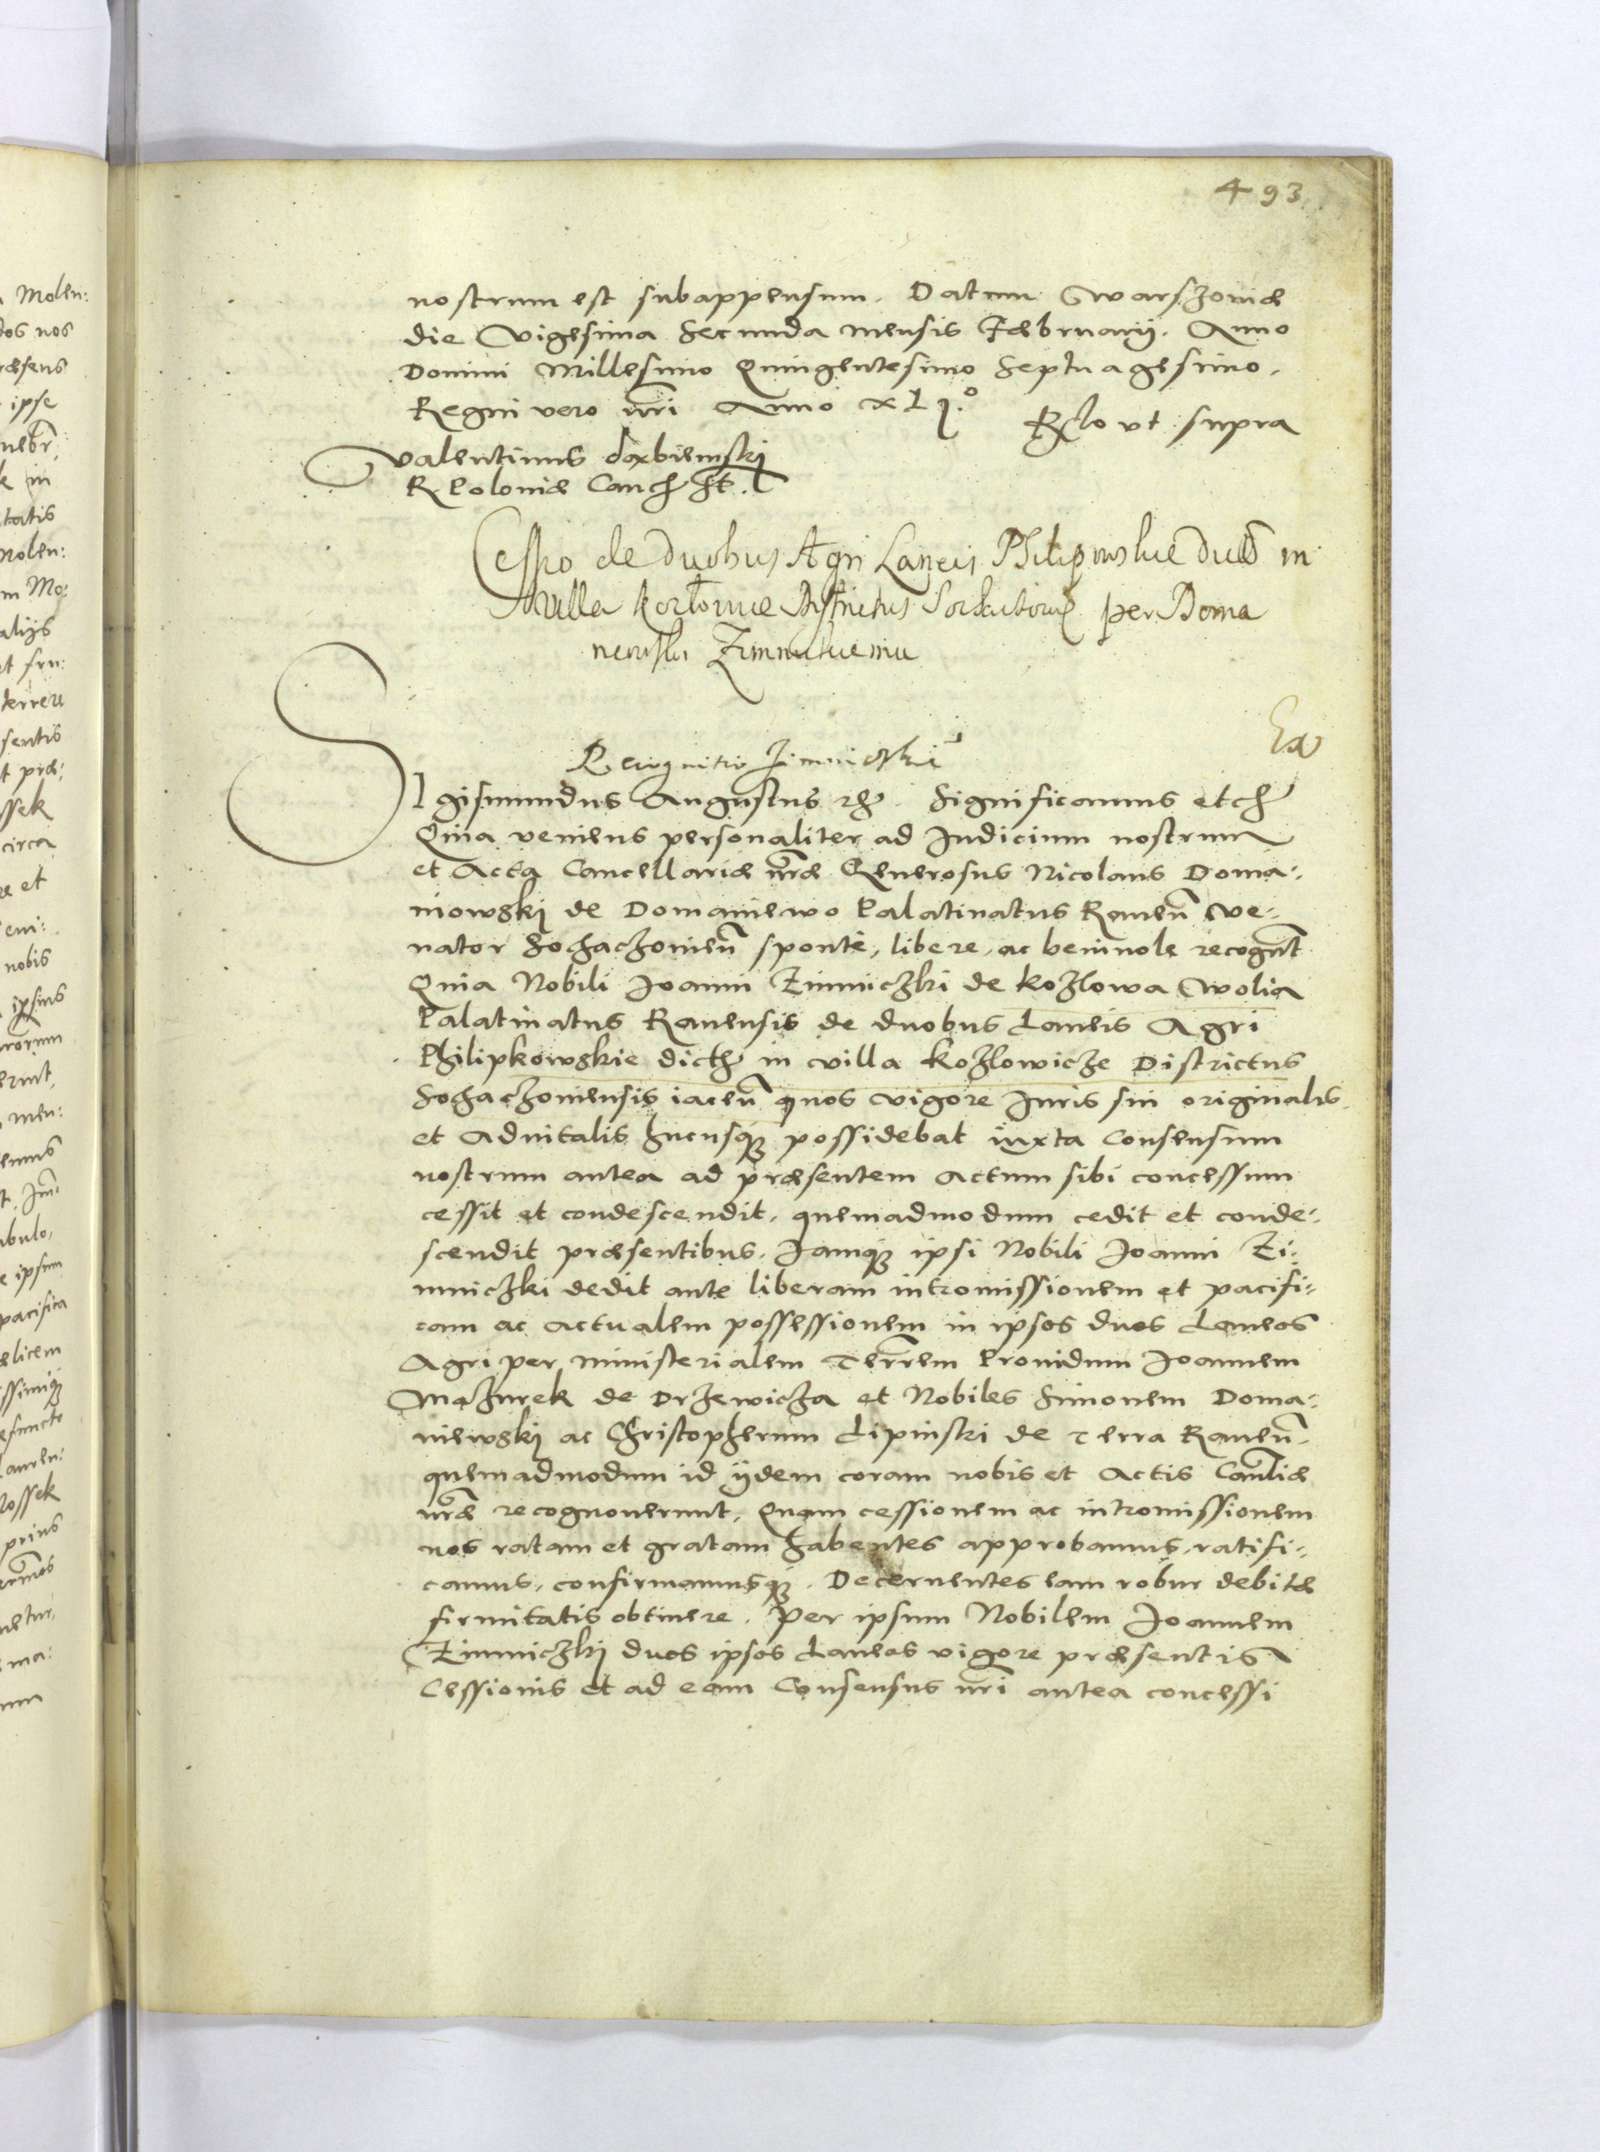 493
nostrum est subappensum. Datum Warszoviæ
die Vigesima Secunda mensis Februarij. Anno
Domini Millesimo Quingentesimo Septuagesimo.
Regni vero nri Anno XLj.o
Rlo ut supra
Valentinus Dębienskj
R Poloniæ Canc. sst.
Cessio de duobus Agri Laneis Philipowskie in
villa Districtus per Doma
niewski
Recognitio Zimniczki
Ex
SIgismundus Augustus etc. Significamus etc
Quia veniens personaliter ad Iudicium nostrum
et Acta Cancellariæ nræ Generosus Nicolaus Doma:
niowskj de Domaniewo Palatinatus Rauen Ve:
nator Sochaczouien sponte, libere, ac beniuole recognt
Quia Nobili Joanni Zimniczki de Kozlowa Wolia
Palatinatus Rauensis de duobus Laneis Agri
Philipkowskie dict in villa Kozlowicze Districtus
Sochaczouiensis iacen quos vigore Iuris sui originalis
et Aduitalis hucusq possidebat iuxta Consensum
nostrum antea ad præsentem Actum sibi concessum
cessit et condescendit, quemadmodum cedit et conde:
scendit præsentibus. Iamq ipsi Nobili Joanni Zi:
mniczki dedit ante liberam intromissionem et pacifi:
cam ac actualem possessionem in ipsos duos Laneos
Agri per ministerialem Terrem Prouidum Joannem
Mazurek de Drzewicza et Nobiles Simonem Doma:
niewskj ac Christopherum Lipinski de Terra Rauen.
quemadmodum id ijdem coram nobis et Actis Canliæ
nræ recognouerunt. Quam cessionem ac intromissionem
nos ratam et gratam habentes approbamus, ratifi:
camus, confirmamusq. Decernentes eam robur debitæ
firmitatis obtinere. Per ipsum Nobilem Joannem
Zimniczkj duos ipsos Laneos vigore præsentis
Cessionis et ad eam Consensus nri antea concessi